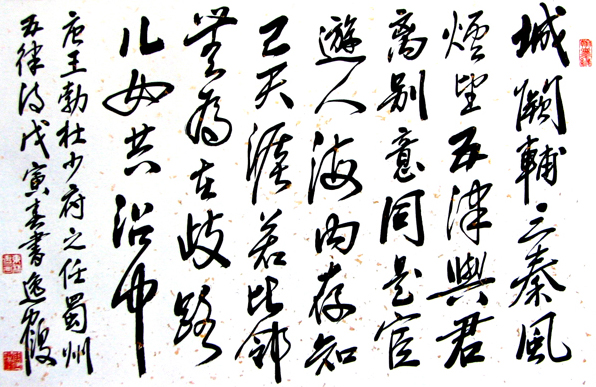 城阙輔三秦风
煙望五津與君
离别意同是宦
遊人海内存知
己天涯若比邻
無为在歧路
儿女共沾巾
唐王勃杜少府之任蜀州
五律诗戊寅春書